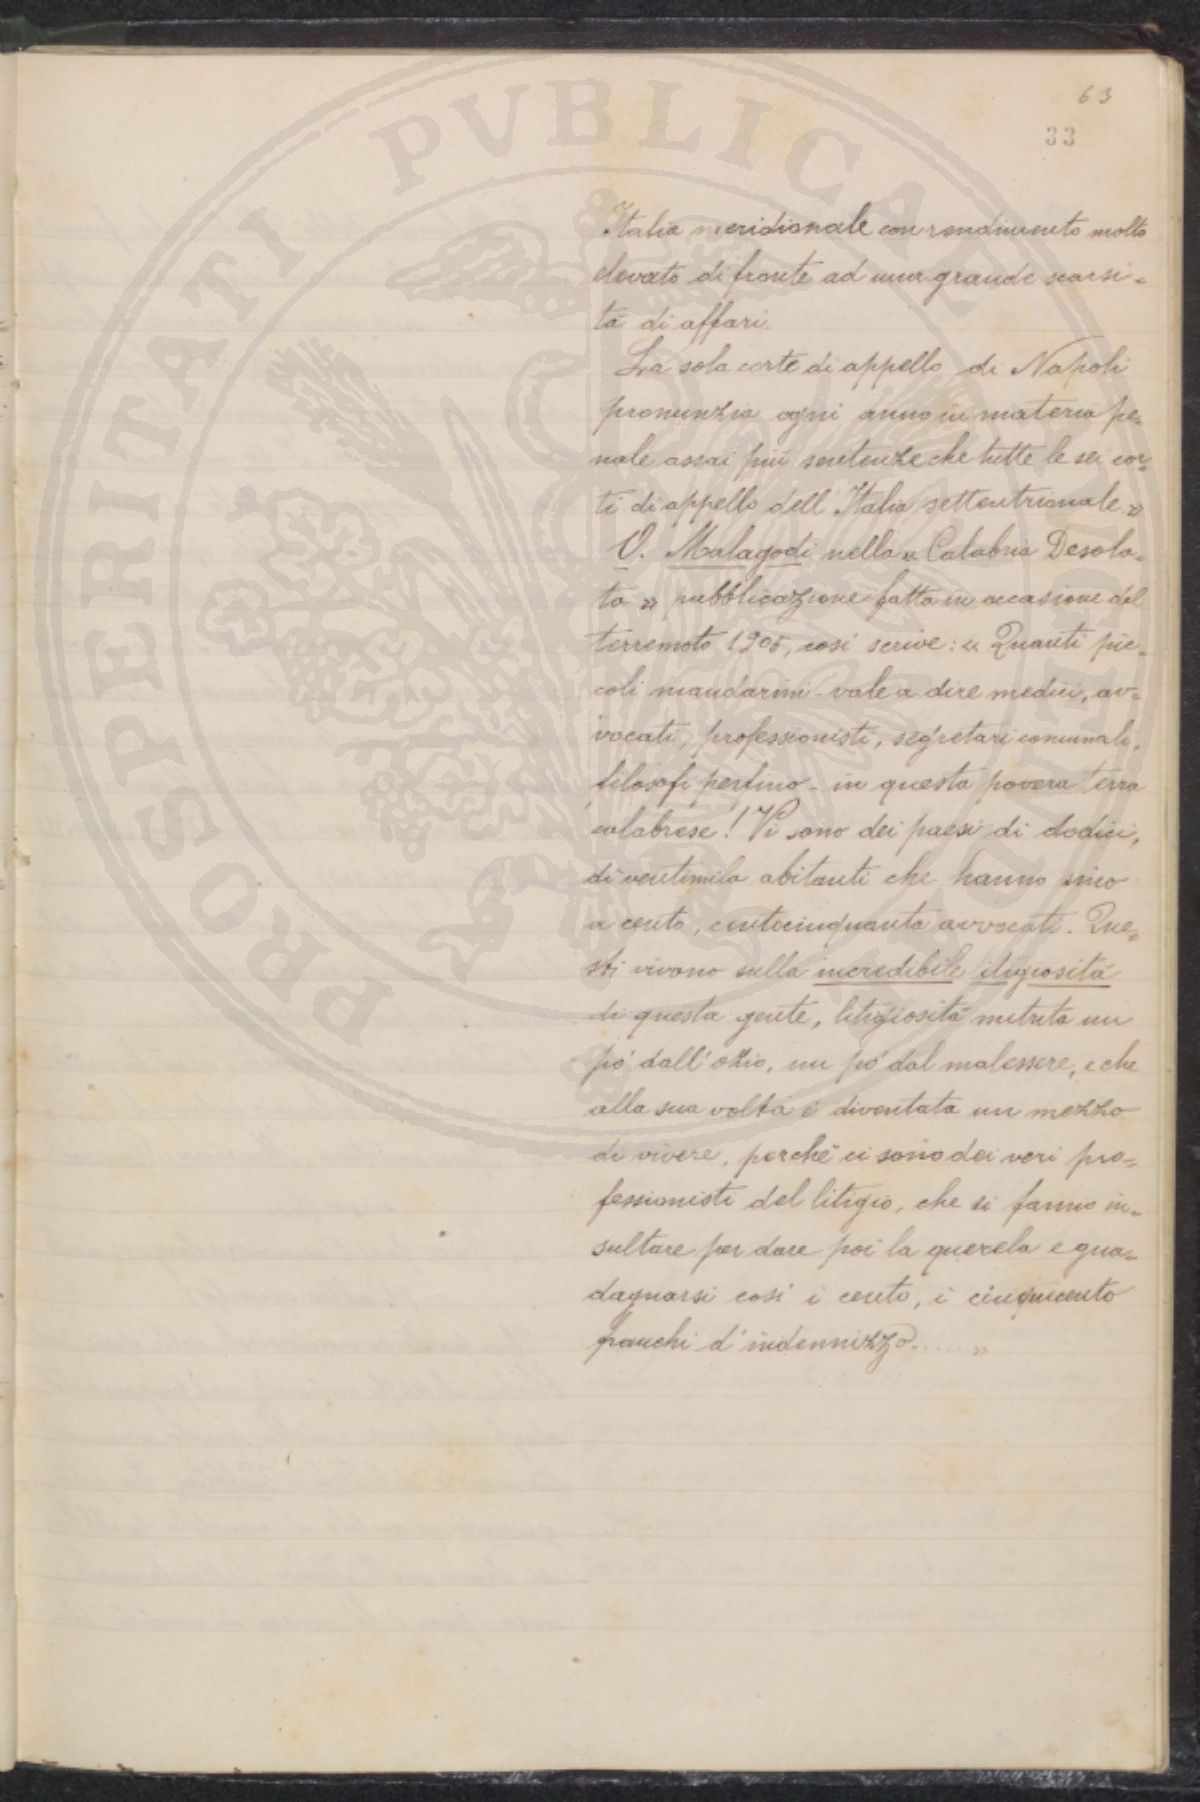 63
33
Italia meridionale con rendimento molto
elevato di fronte ad una grande scarsi-
tà di affari.
La sola corte di appello di Napoli
pronunzia ogni anno in materia pe-
nale assai più sentenze che tutte le sei cor-
ti di appello dell'Italia settentrionale »
O. Malagodi nella « Calabria Desola-
ta » pubblicazione fatta in occasione del
terremoto 1905, così scrive: « Quanti pic-
coli mandarini - vale a dire medici, av-
vocati, professionisti, segretari comunali,
filosofi perfino - in questa povera terra
calabrese! Vi sono dei paesi di dodici,
di ventimila abitanti che hanno sino
a cento, centocinquanta avvocati. Que-
sti vivono sulla incredibile litigiosità
di questa gente, litigiosità nutrita un
pò dall'ozio, un pò dal malessere, e che
alla sua volta è diventata un mezzo
di vivere, perchè ci sono dei veri pro-
fessionisti del litigio, che si fanno in-
sultare per dare poi la querela e gua-
dagnarsi così i cento, i cinquecento
franchi d'indennizzo..... »
PROSPERITATI PVBLICAE